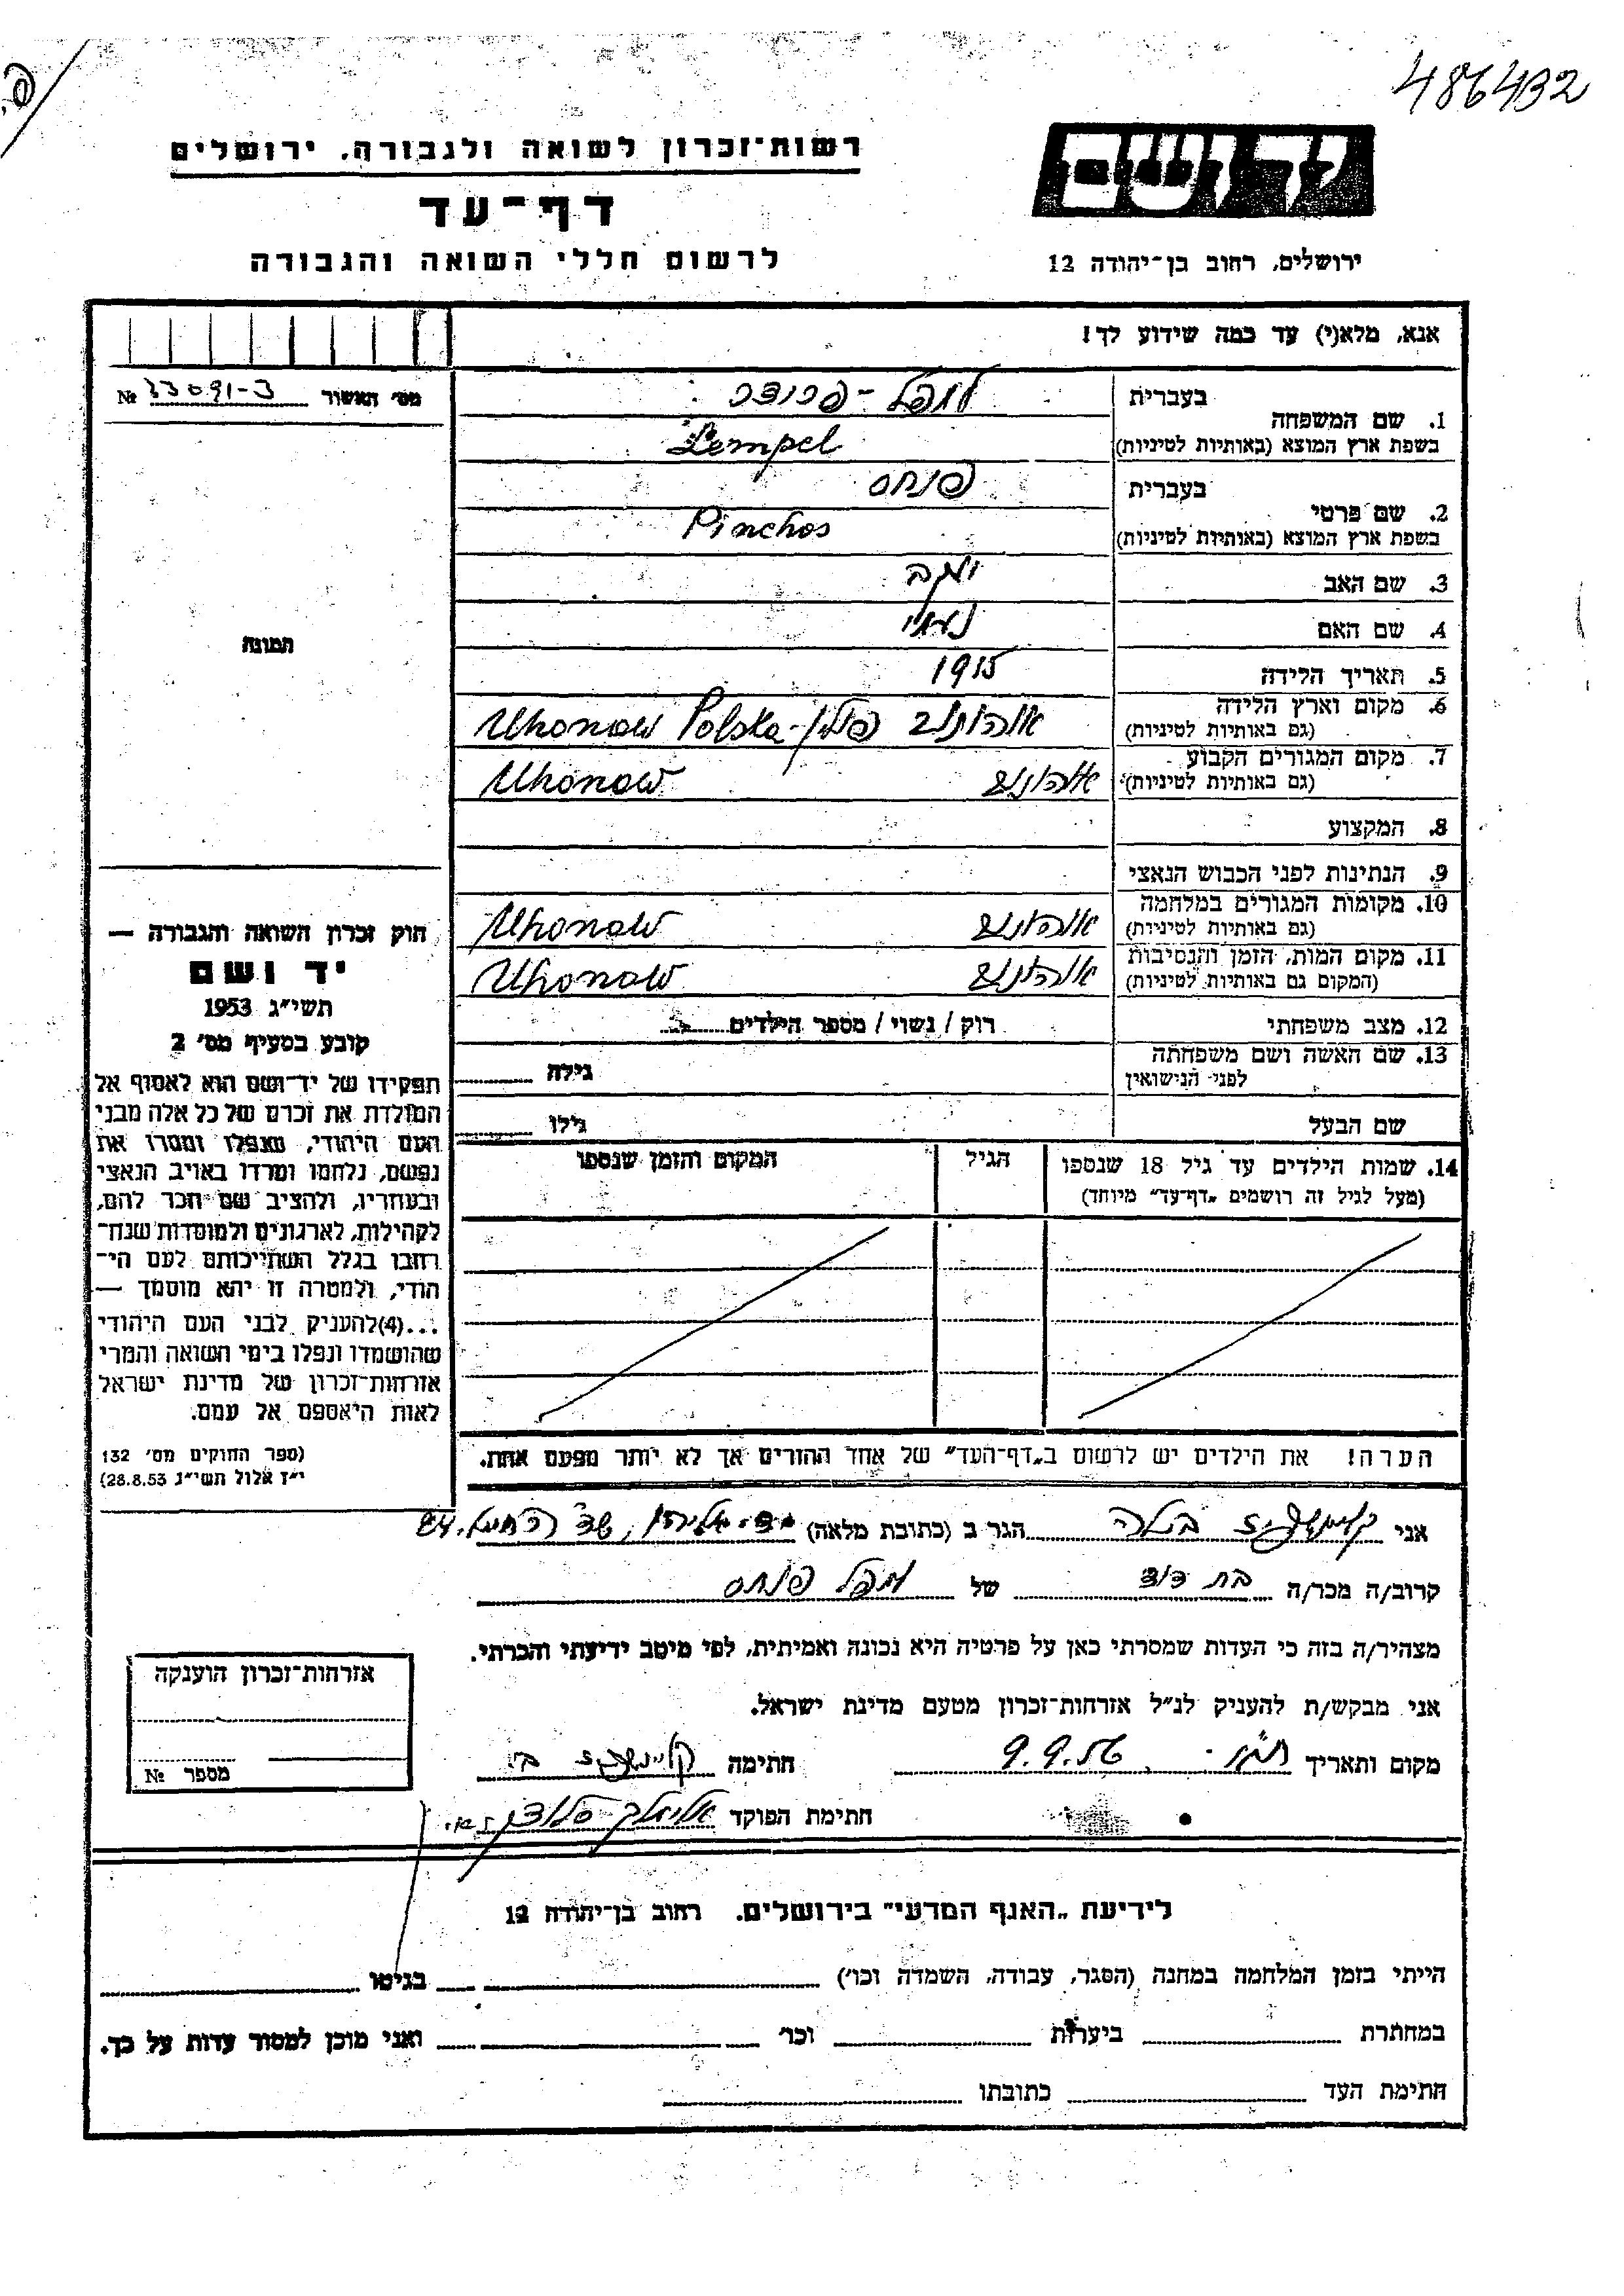 486432
רשות-זכרון לשואה ולגבורה, ירושלים
דף-עד
לרשום חללי השואה והגבורה
יד ושם
ירושלים, רחוב בן-יהודה 12
אנא, מלא(י) עד כמה שידוע לך!
מס' האשור № 33091-3
1. שם המשפחה
בעברית
בשפת ארץ המוצא (באותיות לטיניות) Lempel
2. שם פרטי
בעברית פנחס
בשפת ארץ המוצא (באותיות לטיניות) Pinchos
3. שם האב יעקב
4. שם האם נעמי
5. תאריך הלידה 1915
6. מקום וארץ הלידה
(גם באותיות לטיניות) אוהונוב פולין - Uhonow Polska
7. מקום המגורים הקבוע
(גם באותיות לטיניות) אוהונוב Uhonow
8. המקצוע
9. הנתינות לפני הכבוש הנאצי
10. מקומות המגורים במלחמה
(גם באותיות לטיניות) אוהונוב Uhonow
11. מקום המות, הזמן והנסיבות
(המקום גם באותיות לטיניות) אוהונוב Uhonow
12. מצב משפחתי רוק / נשוי / מספר הילדים
13. שם האשה ושם משפחתה
לפני הנישואין גילה
שם הבעל גילו
14. שמות הילדים עד גיל 18 שנספו
(מעל לגיל זה רושמים „דף-עד" מיוחד)
הגיל
המקום והזמן שנספו
הערה! את הילדים יש לרשום ב„דף-העד" של אחד ההורים אך לא יותר מפעם אחת.
תמונה
חוק זכרון השואה והגבורה —
יד ושם
תשי"ג 1953
קובע בסעיף מס' 2
תפקידו של יד-ושם הוא לאסוף אל
המולדת את זכרם של כל אלה מבני
העם היהודי, שנפלו ומסרו את
נפשם, נלחמו ומרדו באויב הנאצי
ובעוזריו, ולהציב שם וזכר להם,
לקהילות, לארגונים ולמוסדות שנח-
רבו בגלל השתייכותם לעם הי-
הודי, ולמטרה זו יהא מוסמך —
...(4) להעניק לבני העם היהודי
שהושמדו ונפלו בימי השואה והמרי
אזרחות-זכרון של מדינת ישראל
לאות היאספם אל עמם.
(ספר החוקים מס' 132
י"ז אלול תשי"ג 28.8.53)
אני הגר ב (כתובת מלאה)
קרוב/ה מכר/ה בת דוד של למפל פנחס
מצהיר/ה בזה כי העדות שמסרתי כאן על פרטיה היא נכונה ואמיתית, לפי מיטב ידיעתי והכרתי.
אני מבקש/ת להעניק לנ"ל אזרחות-זכרון מטעם מדינת ישראל.
מקום ותאריך 9.9.56 חתימה
חתימת הפוקד
אזרחות-זכרון הוענקה
מספר №
לידיעת „האגף המדעי" בירושלים, רחוב בן-יהודה 12
הייתי בזמן המלחמה במחנה (הסגר, עבודה, השמדה וכו') בגיטו
במחתרת ביערות וכו' ואני מוכן למסור עדות על כך.
חתימת העד כתובתו